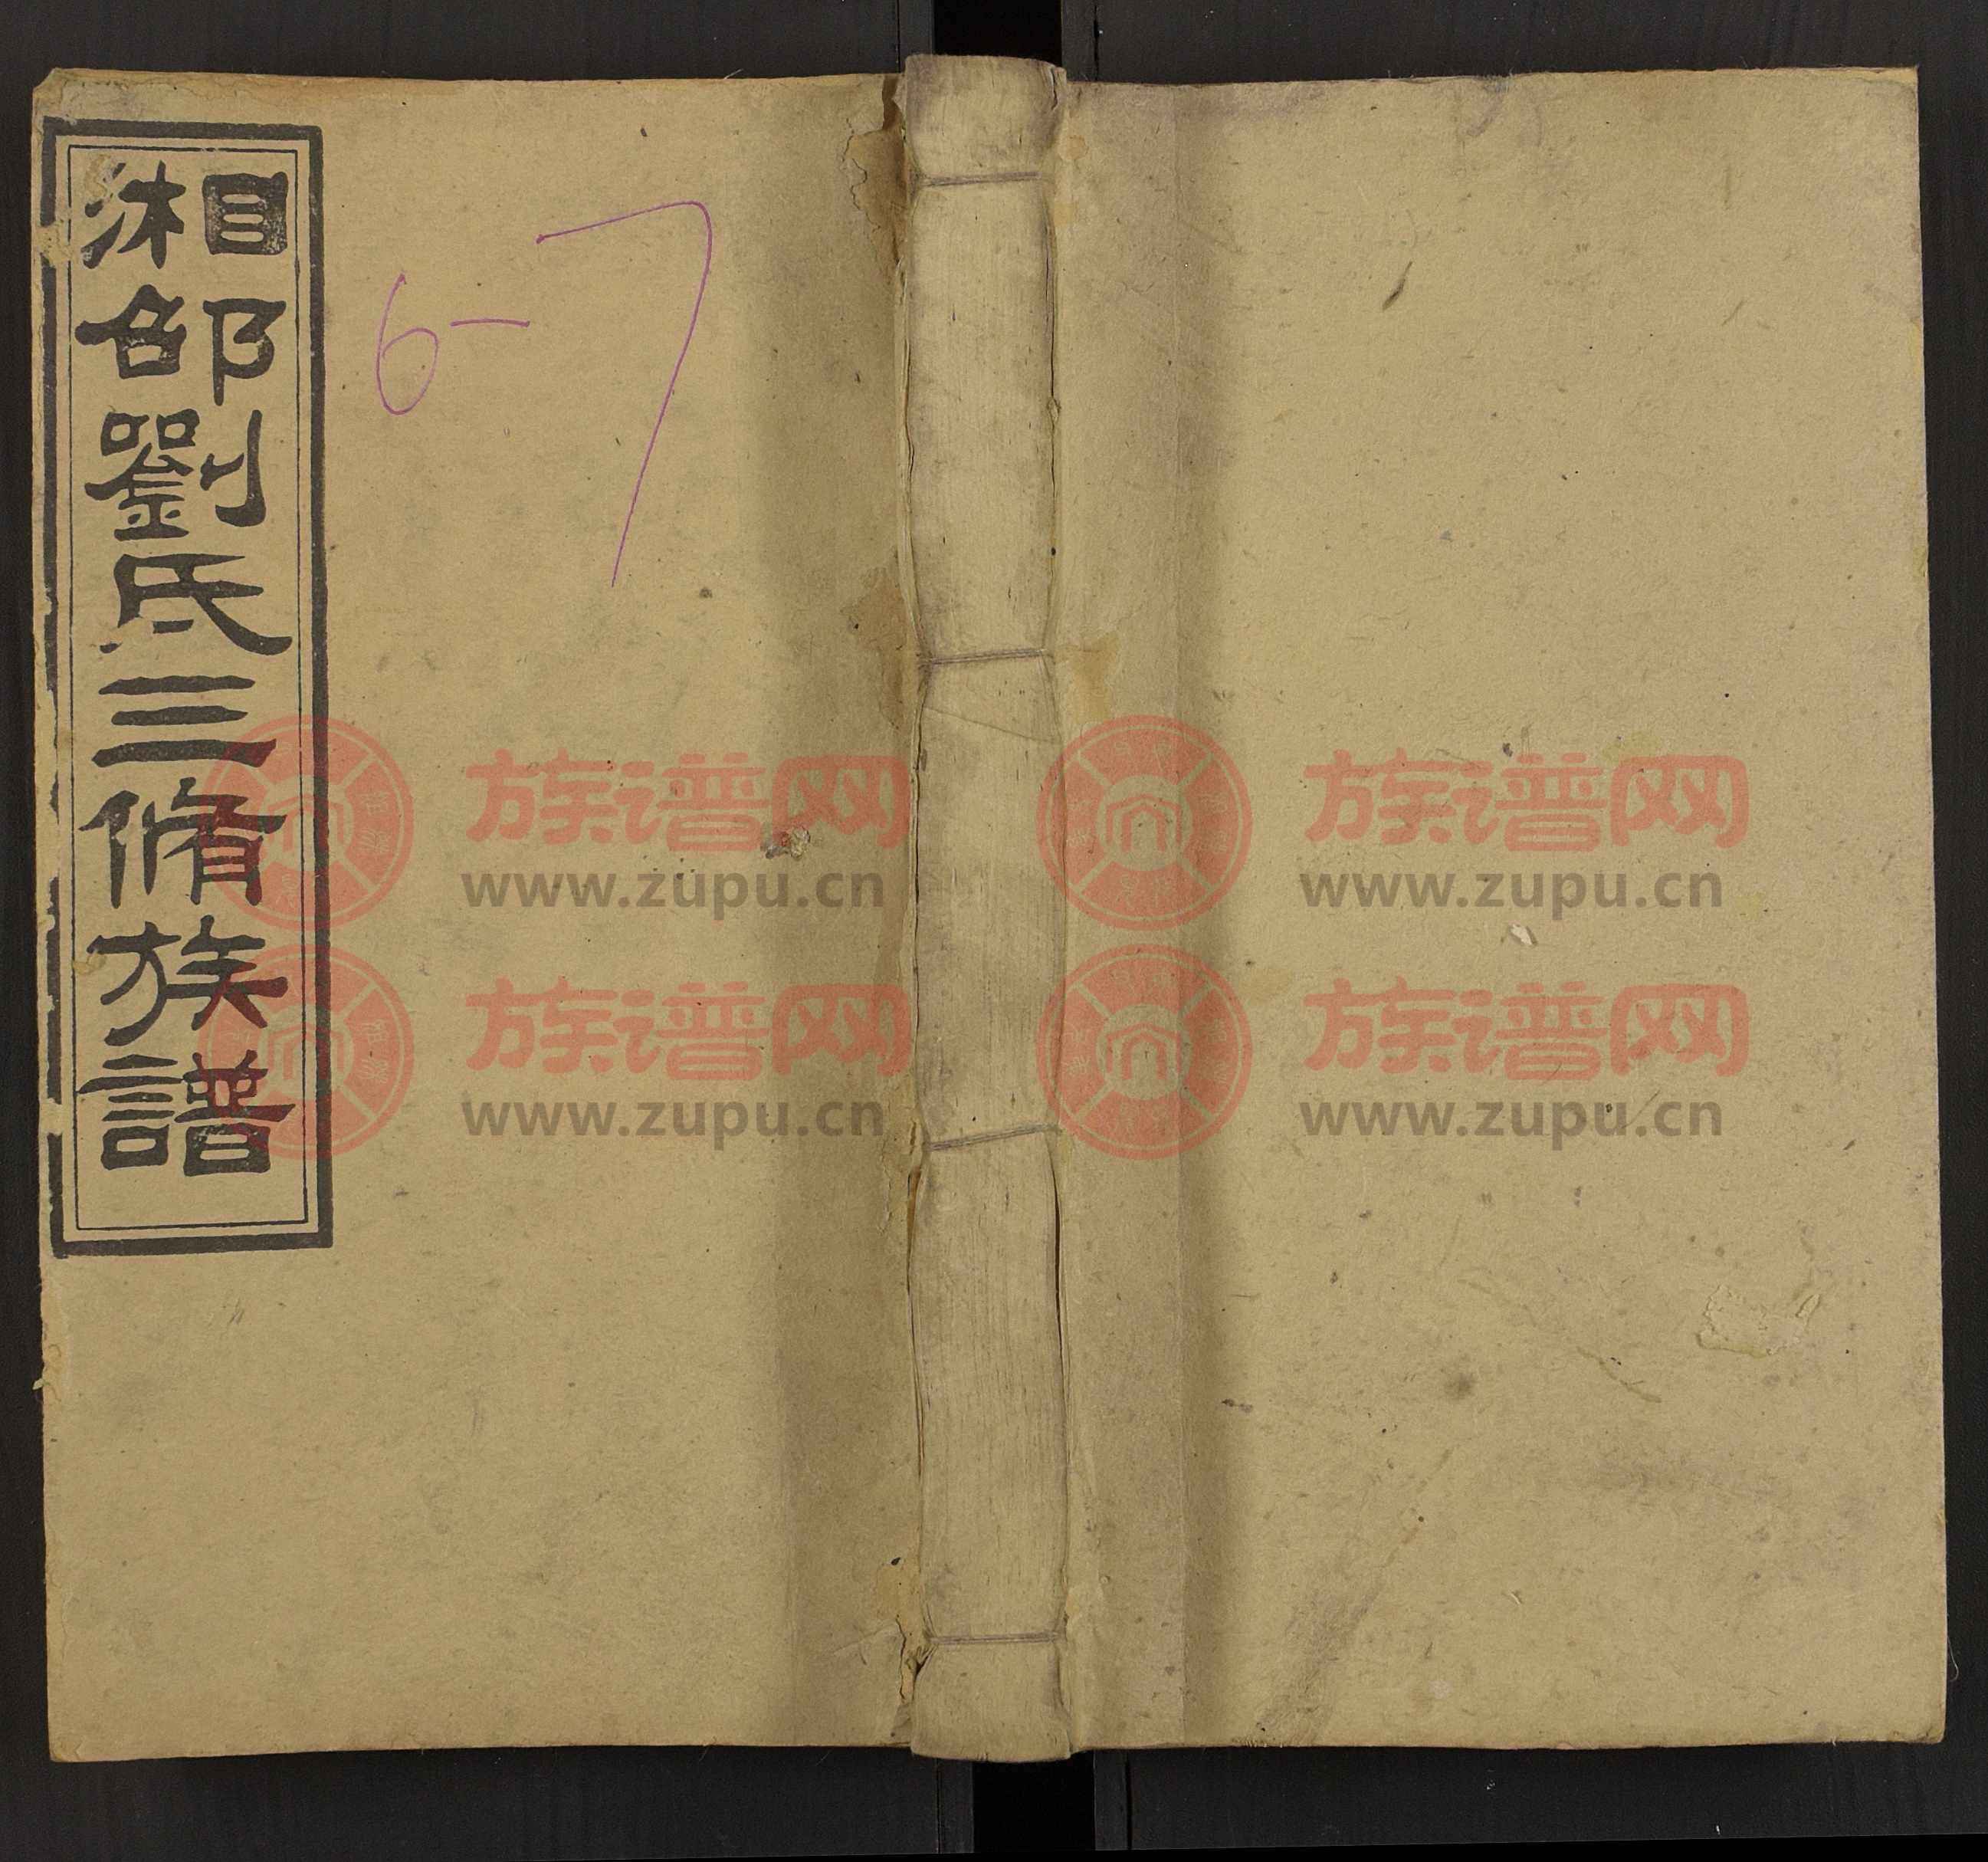 湘邵劉氏三脩族譜
6-7
族谱网
www.zupu.cn
族谱网
www.zupu.cn
族谱网
www.zupu.cn
族谱网
www.zupu.cn